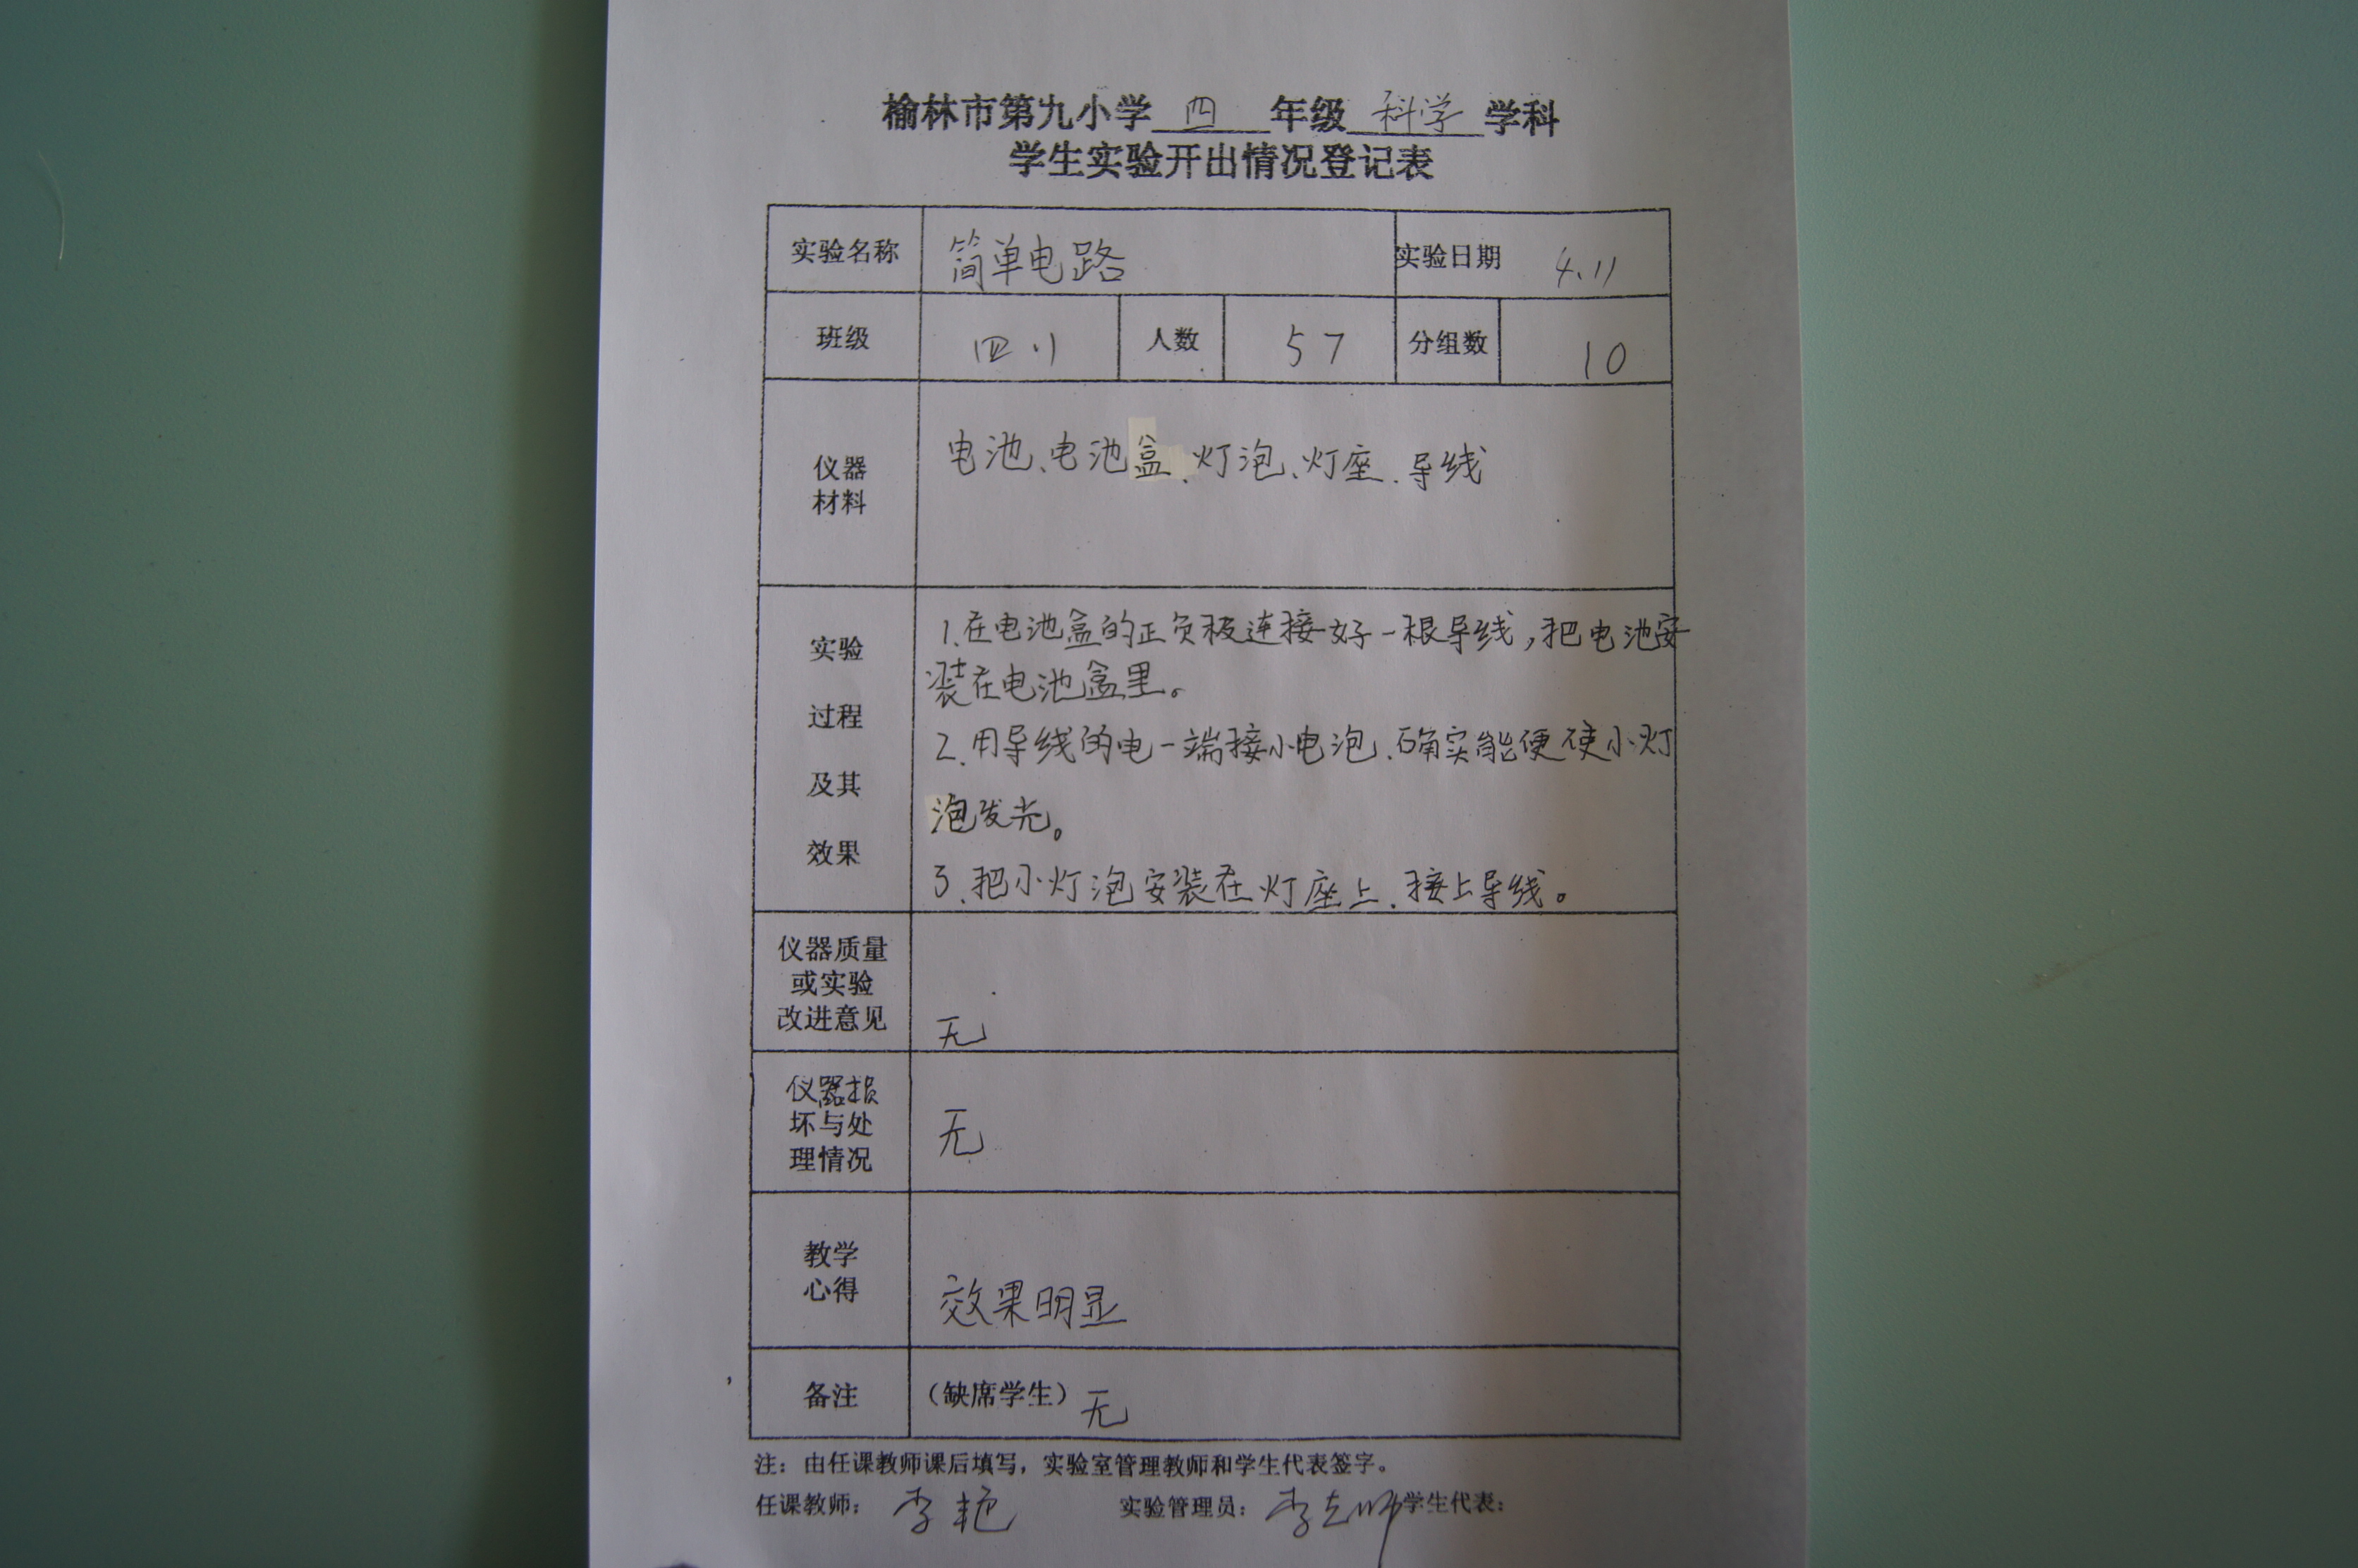 榆林市第九小学 四 年级 科学 学科
学生实验开出情况登记表
实验名称 简单电路 实验日期 4.11
班级 四.1 人数 57 分组数 10
仪器
材料
电池、电池盒、灯泡、灯座、导线
实验
过程
及其
效果
1.在电池盒的正负极连接好一根导线,把电池安
装在电池盒里。
2.用导线的电一端接小电泡、确实能便使小灯
泡发光。
3、把小灯泡安装在灯座上、接上导线。
仪器质量
或实验
改进意见
无
仪器损
坏与处
理情况
无
教学
心得
效果明显
备注 (缺席学生) 无
注：由任课教师课后填写，实验室管理教师和学生代表签字。
任课教师： 李艳 实验管理员： 李 师 学生代表：